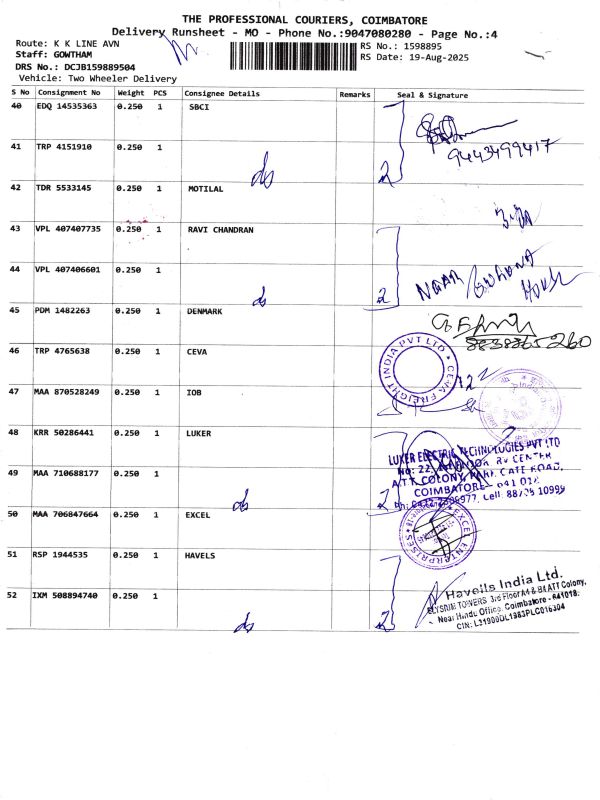 THE PROFESSIONAL COURIERS, COIMBATORE
Delivery Runsheet - MO - Phone No.:9047080280 - Page No.:4
Route: K K LINE AVN
RS No.: 1598895
Staff: GOWTHAM
RS Date: 19-Aug-2025
DRS No.: DCJB159889504
Vehicle: Two Wheeler Delivery
S No Consignment No Weight PCS Consignee Details Remarks Seal & Signature
40 EDQ 14535363 0.250 1 SBCI
9443499417
41 TRP 4151910 0.250 1
ds 2
42 TDR 5533145 0.250 1 MOTILAL
43 VPL 407407735 0.250 1 RAVI CHANDRAN
44 VPL 407406601 0.250 1
ds 2
45 PDM 1482263 0.250 1 DENMARK
8838865260
46 TRP 4765638 0.250 1 CEVA
CEVA FREIGHT INDIA PVT LTD
47 MAA 870528249 0.250 1 IOB
48 KRR 50286441 0.250 1 LUKER
LUKER ELECTRIC TECHNOLOGIES PVT LTD
No: 22, FLOOR, RV CENTER
A.T.T. COLONY, PARK GATE ROAD,
COIMBATORE - 641 018
49 MAA 710688177 0.250 1
ds 2
50 MAA 706847664 0.250 1 EXCEL
EXCEL ENTERPRISES
51 RSP 1944535 0.250 1 HAVELS
Havells India Ltd.
ELYSIUM TOWERS 3rd Floor A4 & B4 ATT Colony,
Near Hindu Office, Coimbatore - 641018.
CIN: L31900DL1983PLC016304
52 IXM 508894740 0.250 1
ds 2